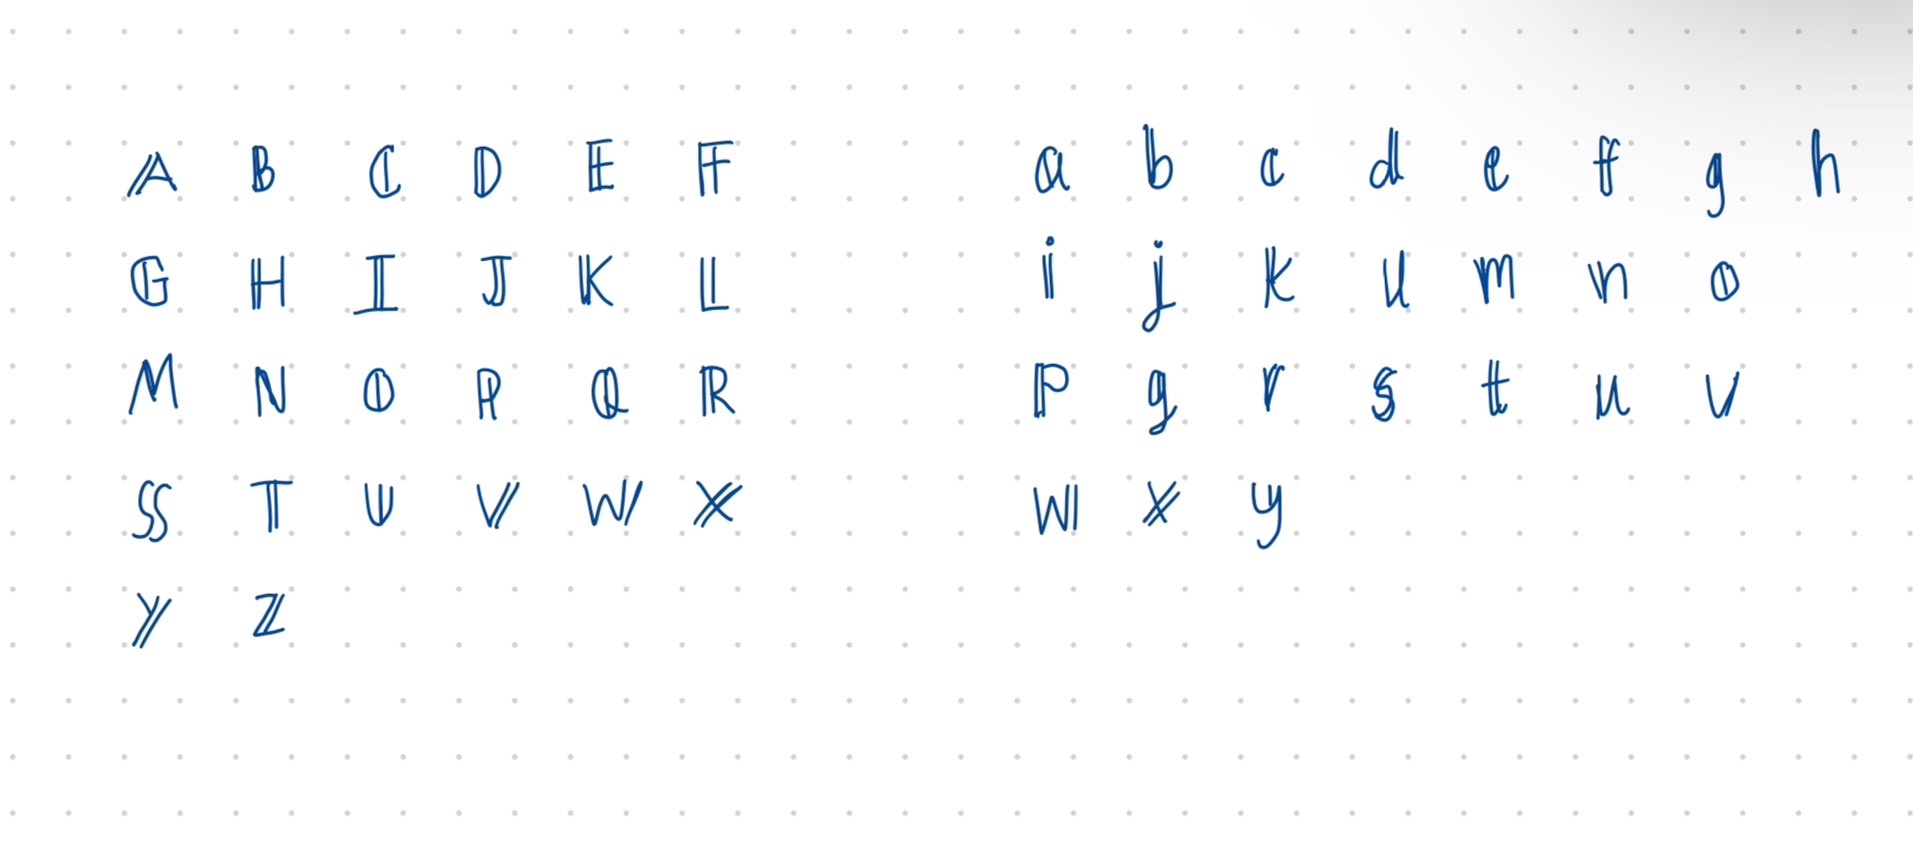 A B C D E F
G H I J K L
M N O P Q R
S T U V W X
Y Z
a b c d e f g h
i j k l m n o
p q r s t u v
w x y